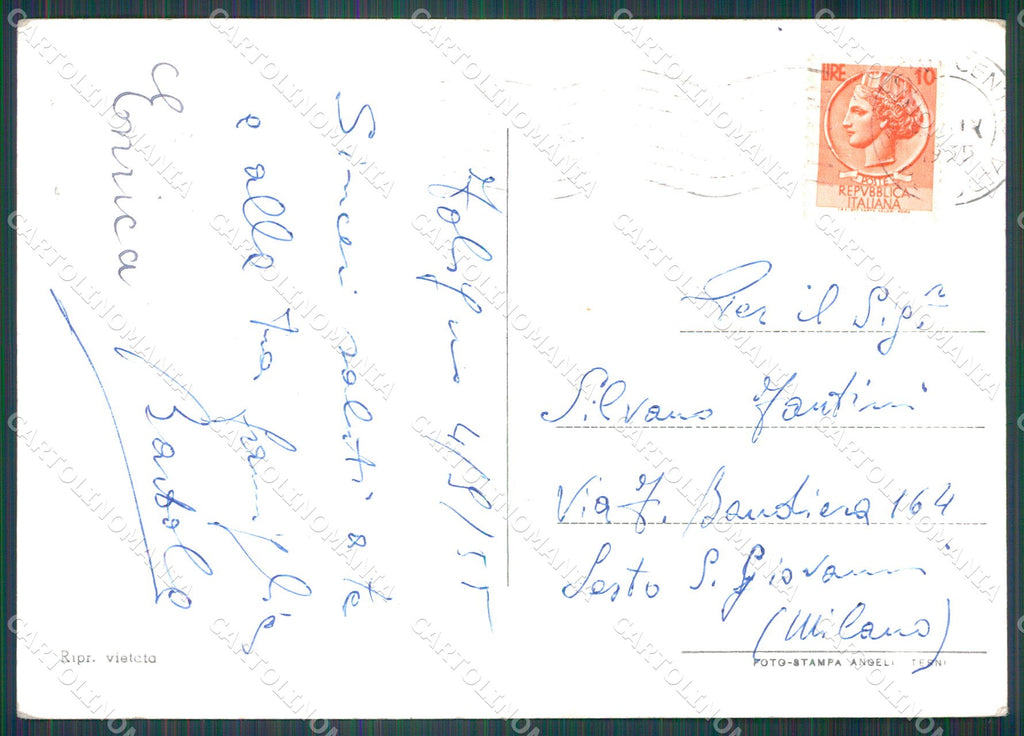 4/9/55
Sinceri saluti a te
e alla tua famiglia
Enrica Bartola
LIRE 10
POSTE
REPVBBLICA
ITALIANA
Per il Sig.r
Silvano Fantini
Via F. Bandiera 164
Sesto S. Giovanni
(Milano)
Ripr. vietata
FOTO-STAMPA ANGELI TERNI
CARTOLINOMANIA